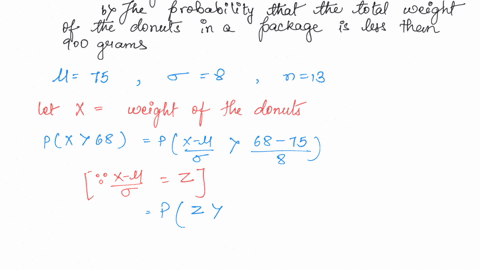 b) The probability that the total weight
of the donuts in a package is less than
900 grams
μ = 75 , σ = 8 , n = 13
let X = weight of the donuts
P(X > 68) = P( (X-μ)/σ > (68-75)/8 )
[∵ (X-μ)/σ = Z]
= P( Z >